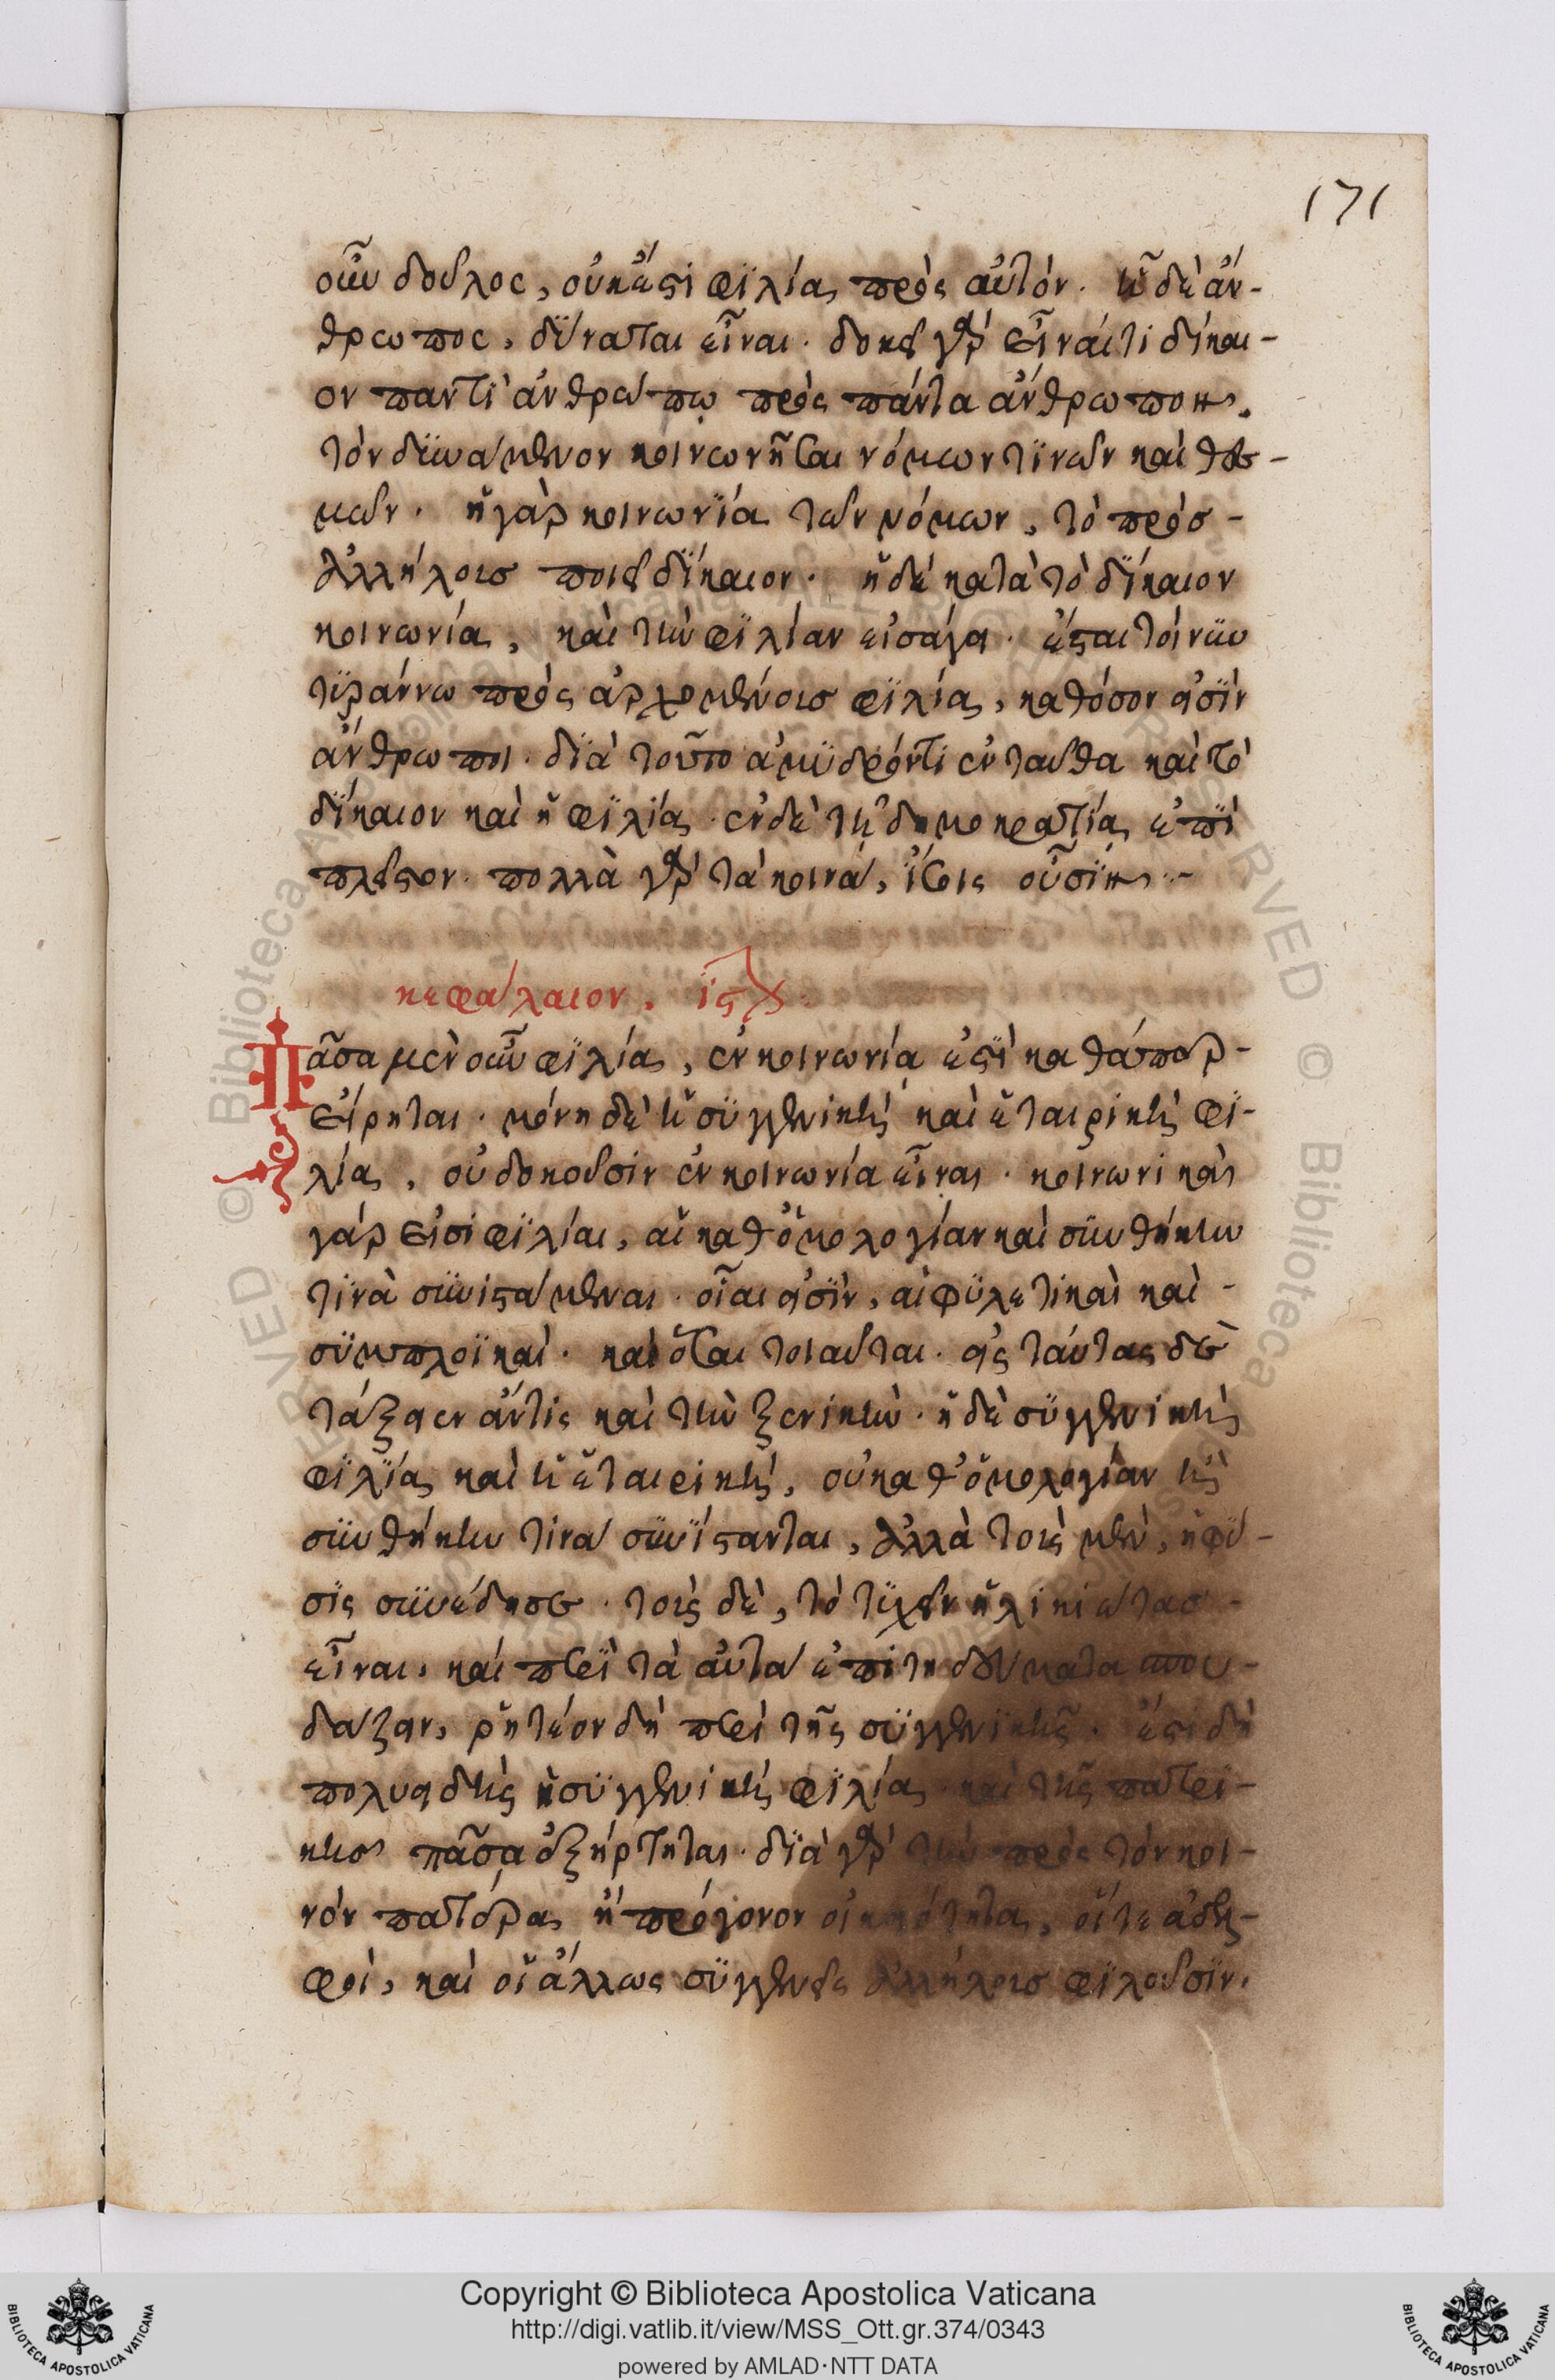 171
οὖν δοῦλος, οὐκ ἔστι φιλία πρὸς αὐτόν. ᾗ δὲ ἄν-
θρωπος, δύναται εἶναι. δοκεῖ γὰρ εἶναί τι δίκαι-
ον παντὶ ἀνθρώπῳ πρὸς πάντα ἄνθρωπον.
τὸν δυνάμενον κοινωνῆσαι νόμων τινῶν καὶ θεσ-
μῶν. ἡ γὰρ κοινωνία τῶν νόμων, τὸ πρὸσ-
ἀλλήλοισ ποιεῖ δίκαιον. ἡ δὲ κατὰ τὸ δίκαιον
κοινωνία, καὶ τὴν φιλίαν εἰσάγει. ἔσται τοίνυν
τυράννω πρὸς ἀρχομένοισ φιλία, καθόσον εἰσὶν
ἄνθρωποι. διὰ τοῦτο ἀμυδρόν τι ἐνταῦθα καὶ τὸ
δίκαιον καὶ ἡ φιλία. ἐν δὲ τῇ δημοκρατία ἐπὶ
πλεῖστον. πολλὰ γὰρ τὰ κοινά, ἴσοις οὖσιν.
κεφάλαιον. ιςχ.
Πᾶσα μὲν οὖν φιλία, ἐν κοινωνίᾳ ἐστὶ καθάπερ-
εἴρηται. μόνη δὲ ἡ συγγενικὴ καὶ ἑταιρικὴ φι-
λία, οὐ δοκοῦσιν ἐν κοινωνία εἶναι. κοινωνικαὶ
γάρ εἰσι φιλίαι, αἱ καθ' ὁμολογίαν καὶ συνθήκην
τινὰ συνιστάμεναι. οἷαι εἰσὶν, αἱ φυλετικαὶ καὶ-
συμπλοϊκαί. καὶ ὅσαι τοιαῦται. εἰς ταύτας δὲ
τάξειεν ἄν τις καὶ τὴν ξενικὴν. ἡ δὲ συγγενικὴ
φιλία καὶ ἡ ἑταιρικὴ, οὐ καθ' ὁμολογίαν ἢ
συνθήκην τινὰ συνίστανται, ἀλλὰ τοὺς μὲν, ἡ φύ-
σις συνέδησε. τοὺς δὲ, τὸ τυχεῖν ἡλικιώτασ-
εἶναι, καὶ περὶ τὰ αὐτὰ ἐπιτηδεύματα σπου-
δάζειν, ῥητέον δὴ περὶ τῆς συγγενικῆς. ἔστι δὴ
πολυειδὴς ἡ συγγενικὴ φιλία. καὶ τῆς πατρι-
κῆσ πᾶσα ἐξήρτηται. διὰ γὰρ τὴν πρὸς τὸν κοι-
νὸν πατέρα ἢ πρόγονον οἰκειότητα, οἵ τε ἀδελ-
φοὶ, καὶ οἱ ἄλλως συγγενεῖς ἀλλήλοισ φιλοῦσιν.
Copyright © Biblioteca Apostolica Vaticana
http://digi.vatlib.it/view/MSS_Ott.gr.374/0343
powered by AMLAD·NTT DATA
BIBLIOTECA APOSTOLICA VATICANA
BIBLIOTECA APOSTOLICA VATICANA